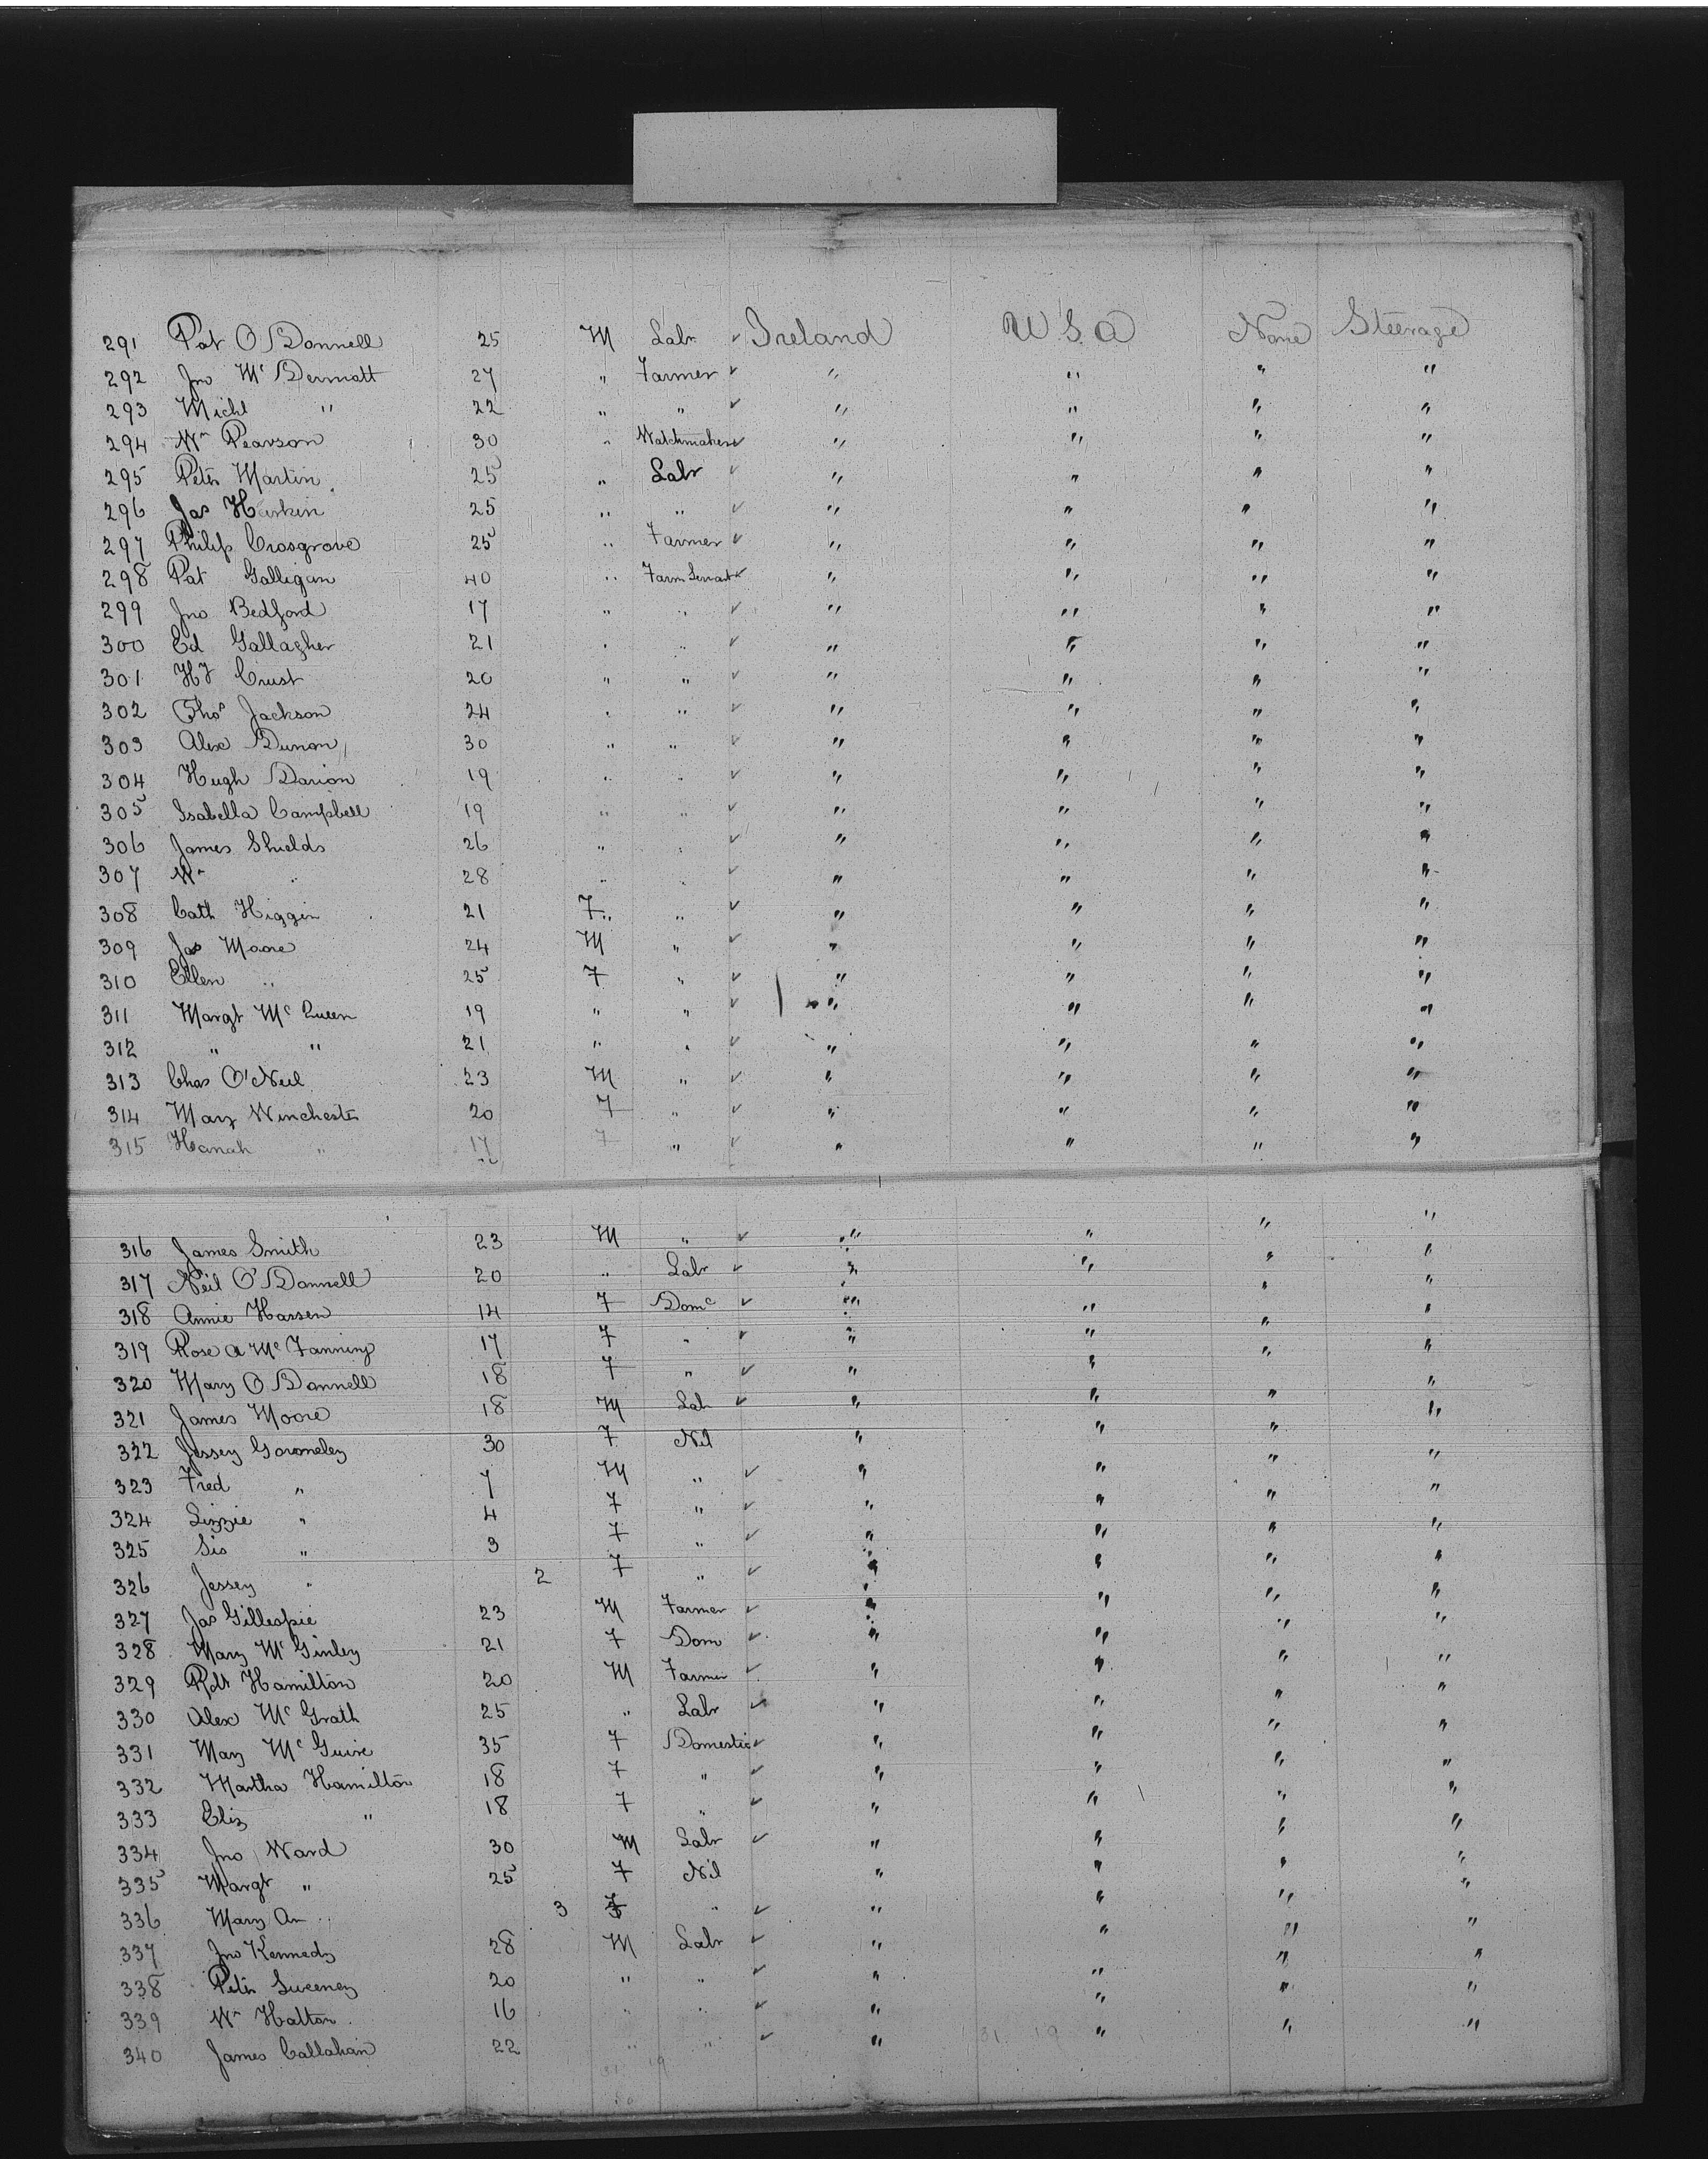 291 Pat O'Donnell 25 M Labr ✓ Ireland U S A None Steerage
292 Jno Mc Dermott 27 " Farmer ✓ " " " "
293 Michl " 22 " " ✓ " " " "
294 Wm Pearson 30 " Watchmaker ✓ " " " "
295 Peter Martin 25 " Labr ✓ " " " "
296 Jas Harkin 25 " " ✓ " " " "
297 Philip Crosgrove 25 " Farmer ✓ " " " "
298 Pat Galligan 40 " Farm Servant ✓ " " " "
299 Jno Bedford 17 " " ✓ " " " "
300 Ed Gallagher 21 " " ✓ " " " "
301 Hy Crust 20 " " ✓ " " " "
302 Thos Jackson 24 " " ✓ " " " "
303 Alex Dunon 30 " " ✓ " " " "
304 Hugh Darion 19 " " ✓ " " " "
305 Isabella Campbell 19 " " ✓ " " " "
306 James Shields 26 " " ✓ " " " "
307 Wm " 28 " " ✓ " " " "
308 Cath Higgin 21 F " ✓ " " " "
309 Jas Moore 24 M " ✓ " " " "
310 Ellen " 25 F " ✓ " " " "
311 Margt Mc Queen 19 " " ✓ " " " "
312 " " 21 " " ✓ " " " "
313 Chas O'Neil 23 M " ✓ " " " "
314 Mary Winchester 20 F " ✓ " " " "
315 Hanah " 17 F " ✓ " " " "
316 James Smith 23 M " ✓ " " " "
317 Neil O'Donnell 20 " Labr ✓ " " " "
318 Annie Hassen 14 F Domc ✓ " " " "
319 Rose A Mc Fanning 17 F " ✓ " " " "
320 Mary O Donnell 18 F " ✓ " " " "
321 James Moore 18 M Lab ✓ " " " "
322 Jessey Goromeley 30 F Nil " " " "
323 Fred " 7 M " ✓ " " " "
324 Lizzie " 4 F " ✓ " " " "
325 Sis " 3 F " ✓ " " " "
326 Jessey " 2 F " ✓ " " " "
327 Jas Gillespie 23 M Farmer ✓ " " " "
328 Mary Mc Ginley 21 F Dom ✓ " " " "
329 Robt Hamilton 20 M Farmer ✓ " " " "
330 Alex Mc Grath 25 " Labr ✓ " " " "
331 Mary Mc Guire 35 F Domestic ✓ " " " "
332 Martha Hamilton 18 F " ✓ " " " "
333 Eliz " 18 F " ✓ " " " "
334 Jno Ward 30 M Labr ✓ " " " "
335 Margt " 25 F Nil " " " "
336 Mary An " 3 F " ✓ " " " "
337 Jno Kennedy 28 M Labr ✓ " " " "
338 Peter Sweeney 20 " " ✓ " " " "
339 Wm Hatton 16 " " ✓ " " " "
340 James Callahan 22 " " ✓ " " " "